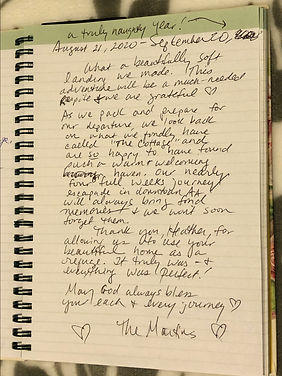 a truly naughty year!
August 21, 2020 – September 20,
What a beautifully soft
landing we made. This
adventure will be a much-needed
respite & we are grateful ♡
As we pack and prepare for
our departure, we look back
on what we fondly have
called "The Cottage" and
are so happy to have found
such a warm & welcoming
haven. Our nearly
four full weeks journey
escapade in downtown
will always bring fond
memories & we won't soon
forget them.
Thank you, Heather, for
allowing us to use your
beautiful home as a
refuge. It truly was - &
everything was perfect!
May God always bless
you each & every journey ♡
♡ The Martins ♡